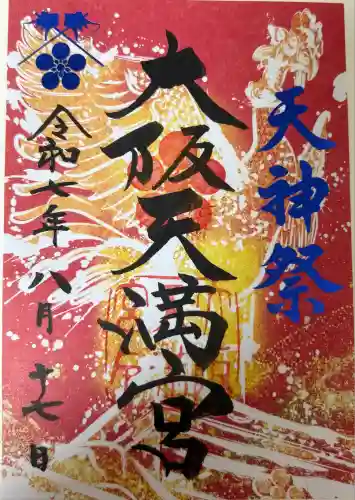 天神祭
大阪天満宮
令和七年八月十七日